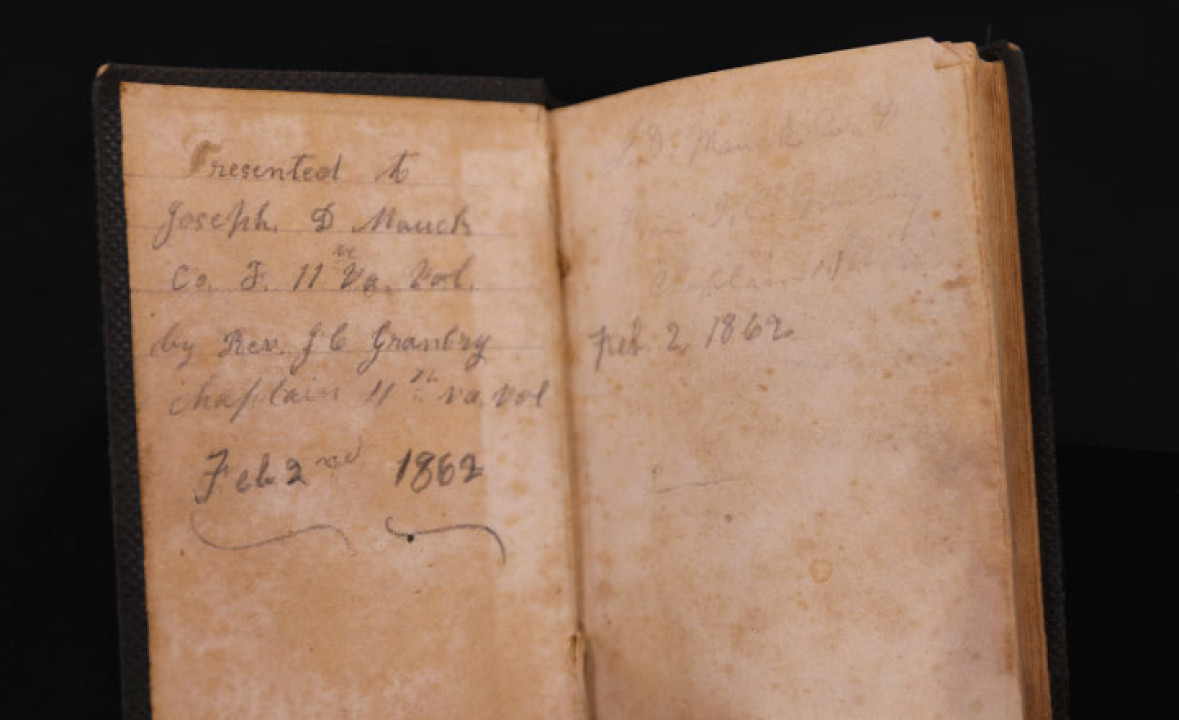 Presented to
Joseph. D Mauck
Co. F. 11 Va. Vol.
by Rev. J C Granbry
chaplain 11th va vol
Feb 2nd 1862
J. D. Mauck
J. C.
Chaplain 11
Feb. 2, 1862